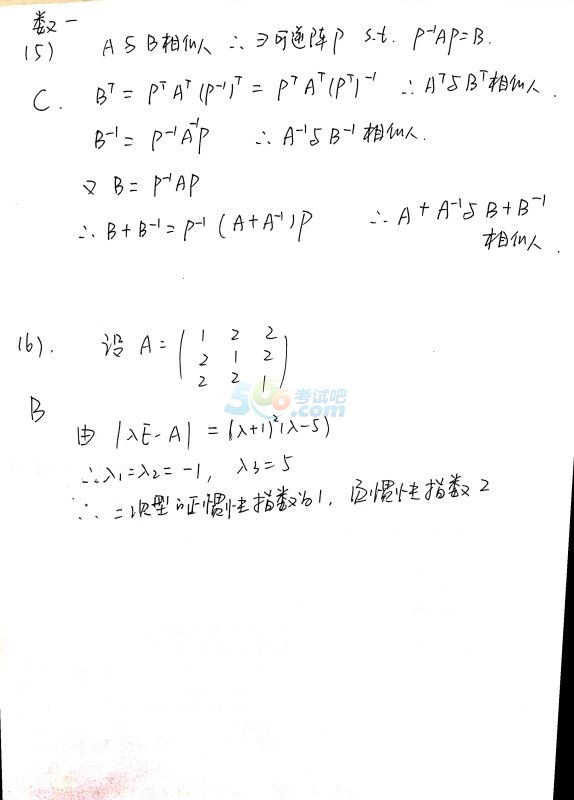 数一
(5) A与B相似 ∴∃可逆阵P s.t. P⁻¹AP=B.
C. Bᵀ = PᵀAᵀ(P⁻¹)ᵀ = PᵀAᵀ(Pᵀ)⁻¹ ∴Aᵀ与Bᵀ相似.
B⁻¹ = P⁻¹A⁻¹P ∴A⁻¹与B⁻¹相似.
又 B = P⁻¹AP
∴B+B⁻¹ = P⁻¹(A+A⁻¹)P ∴A+A⁻¹与B+B⁻¹
相似.
(6). 设 A = ( 1 2 2
2 1 2
2 2 1 )
566考试吧
.com
B
由 |λE-A| = (λ+1)²(λ-5)
∴λ₁=λ₂=-1, λ₃=5
∴二次型的正惯性指数为1, 负惯性指数2